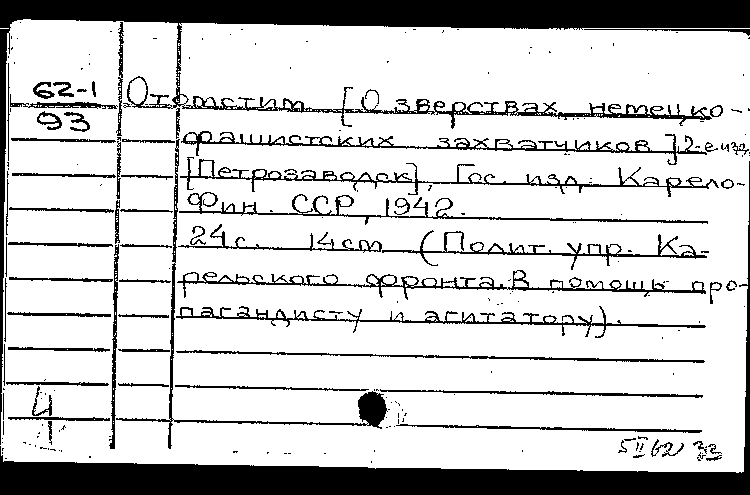 62-1
93
Отомстим [О зверствах немецко-
фашистских захватчиков] 2-е изд.
[Петрозаводск], Гос. изд. Карело-
Фин. ССР, 1942.
24 с. 14 cm (Полит. упр. Ка-
рельского фронта. В помощь про-
пагандисту и агитатору).
4
5 II 62 33